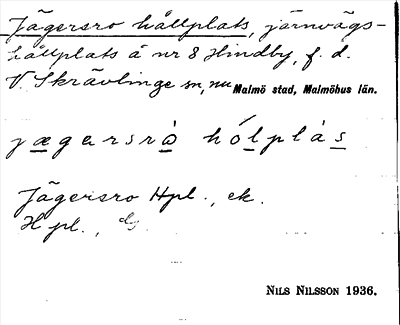 Jägersro hållplats, järnvägs-
hållplats å nr 8 Hindby, f. d.
V. Skrävlinge sn, nu Malmö stad, Malmöhus län.
jægersrò hólplàs
Jägersro Hpl., ek.
Hpl.,
NILS NILSSON 1936.